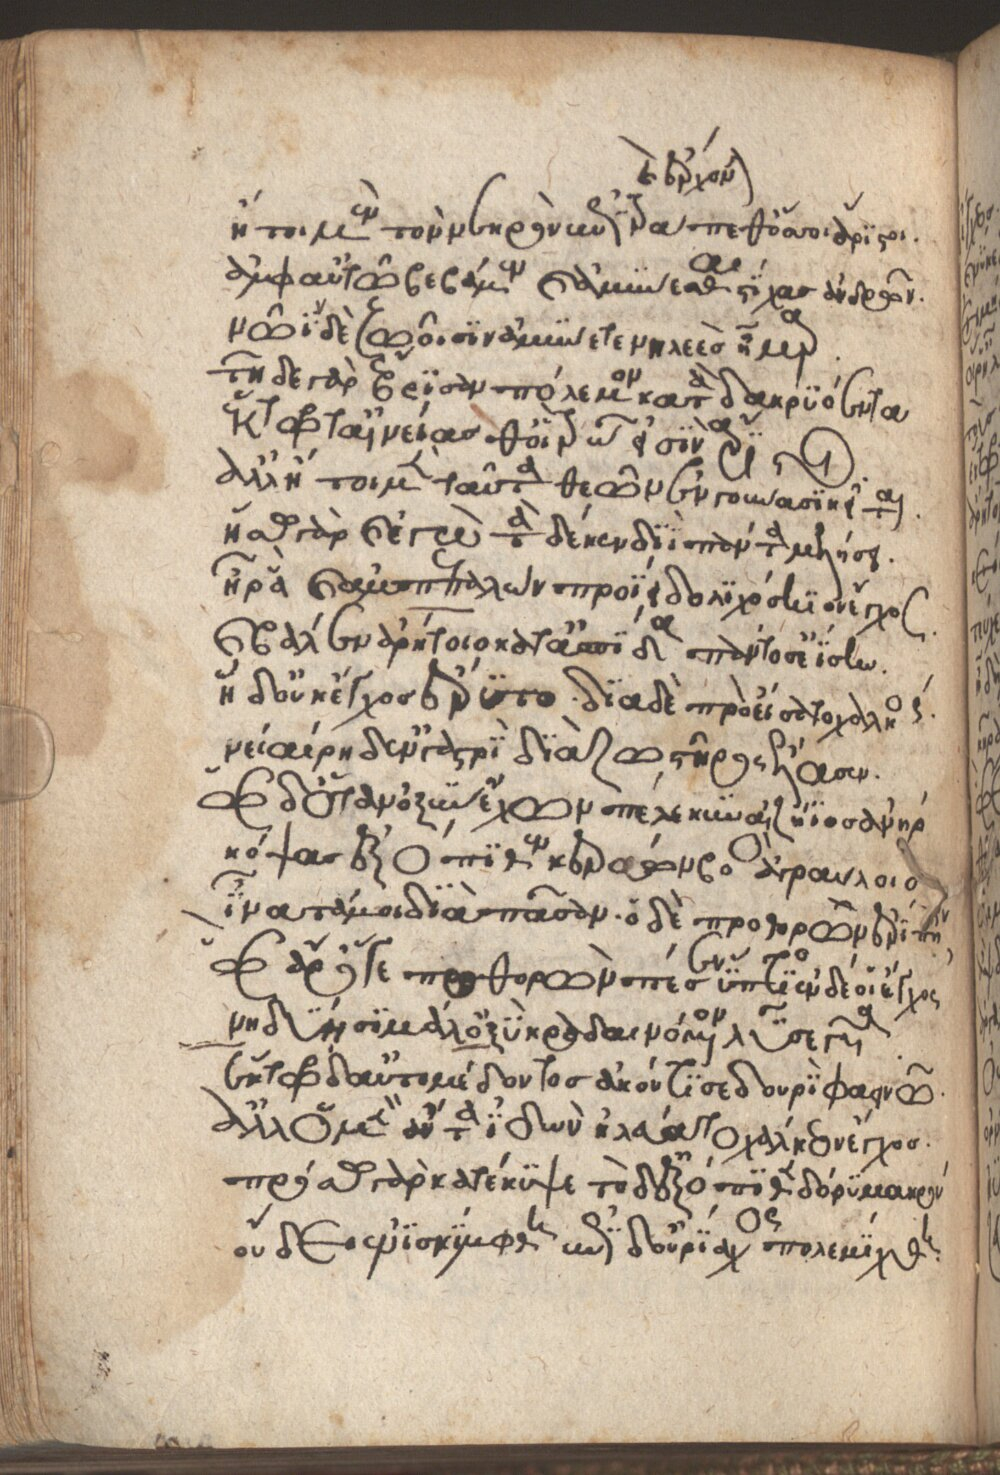 ἤτοι μὲν τὸν νεκρὸν ἐπιτράπεθ' οἵπερ ἄριστοι.
ἀμφ' αὐτῷ βεβάμεν καὶ ἀμύνεσθαι στίχας ἀνδρῶν.
νῶϊν δὲ ζωοῖσιν ἀμύνετε νηλεὲς ἦμαρ.
τῇδε γὰρ ἔβρισαν πόλεμον κατὰ δακρυόεντα
ἕκτωρ αἰνείας θ' οἳ τρώων εἰσὶν ἄριστοι.
ἀλλ' ἤτοι μὲν ταῦτα θεῶν ἐν γούνασι κεῖται.
ἥσω γὰρ καὶ ἐγὼ τὰ δέ κεν διῒ πάντα μελήσει.
ἦ ῥα καὶ ἀμπεπαλὼν προΐει δολιχόσκιον ἔγχος.
καὶ βάλεν ἀρήτοιο κατ' ἀσπίδα πάντοσ' ἐΐσην.
ἡ δ' οὐκ ἔγχος ἔρυτο. διὰ δὲ πρὸ εἴσατο χαλκός.
νειαίρῃ δ' ἐν γαστρὶ διὰ ζωστῆρος ἔλασεν.
ὡς δ' ὅτ' ἂν ὀξὺν ἔχων πέλεκυν αἰζήϊος ἀνὴρ
κόψας ἐξόπιθεν κεράων βοὸς ἀγραύλοιο
ἶνα τάμοι διὰ πᾶσαν. ὁ δὲ προθορὼν ἐρίπῃσιν
ὣς ἄρ' ὅγε προθορὼν πέσεν ὕπτιος ἐν δέ οἱ ἔγχος
νηδυίῃσι μάλ' ὀξὺ κραδαινόμενον λῦσε γυῖα.
ἕκτωρ δ' αὐτομέδοντος ἀκόντισε δουρὶ φαεινῷ.
ἀλλ' ὁ μὲν ἄντα ἰδὼν ἠλεύατο χάλκεον ἔγχος.
πρόσω γὰρ κατέκυψε τὸ δ' ἐξόπιθεν δόρυ μακρὸν
οὔδει ἐνισκίμφθη ἐπὶ δ' οὐρίαχος πελεμίχθη.